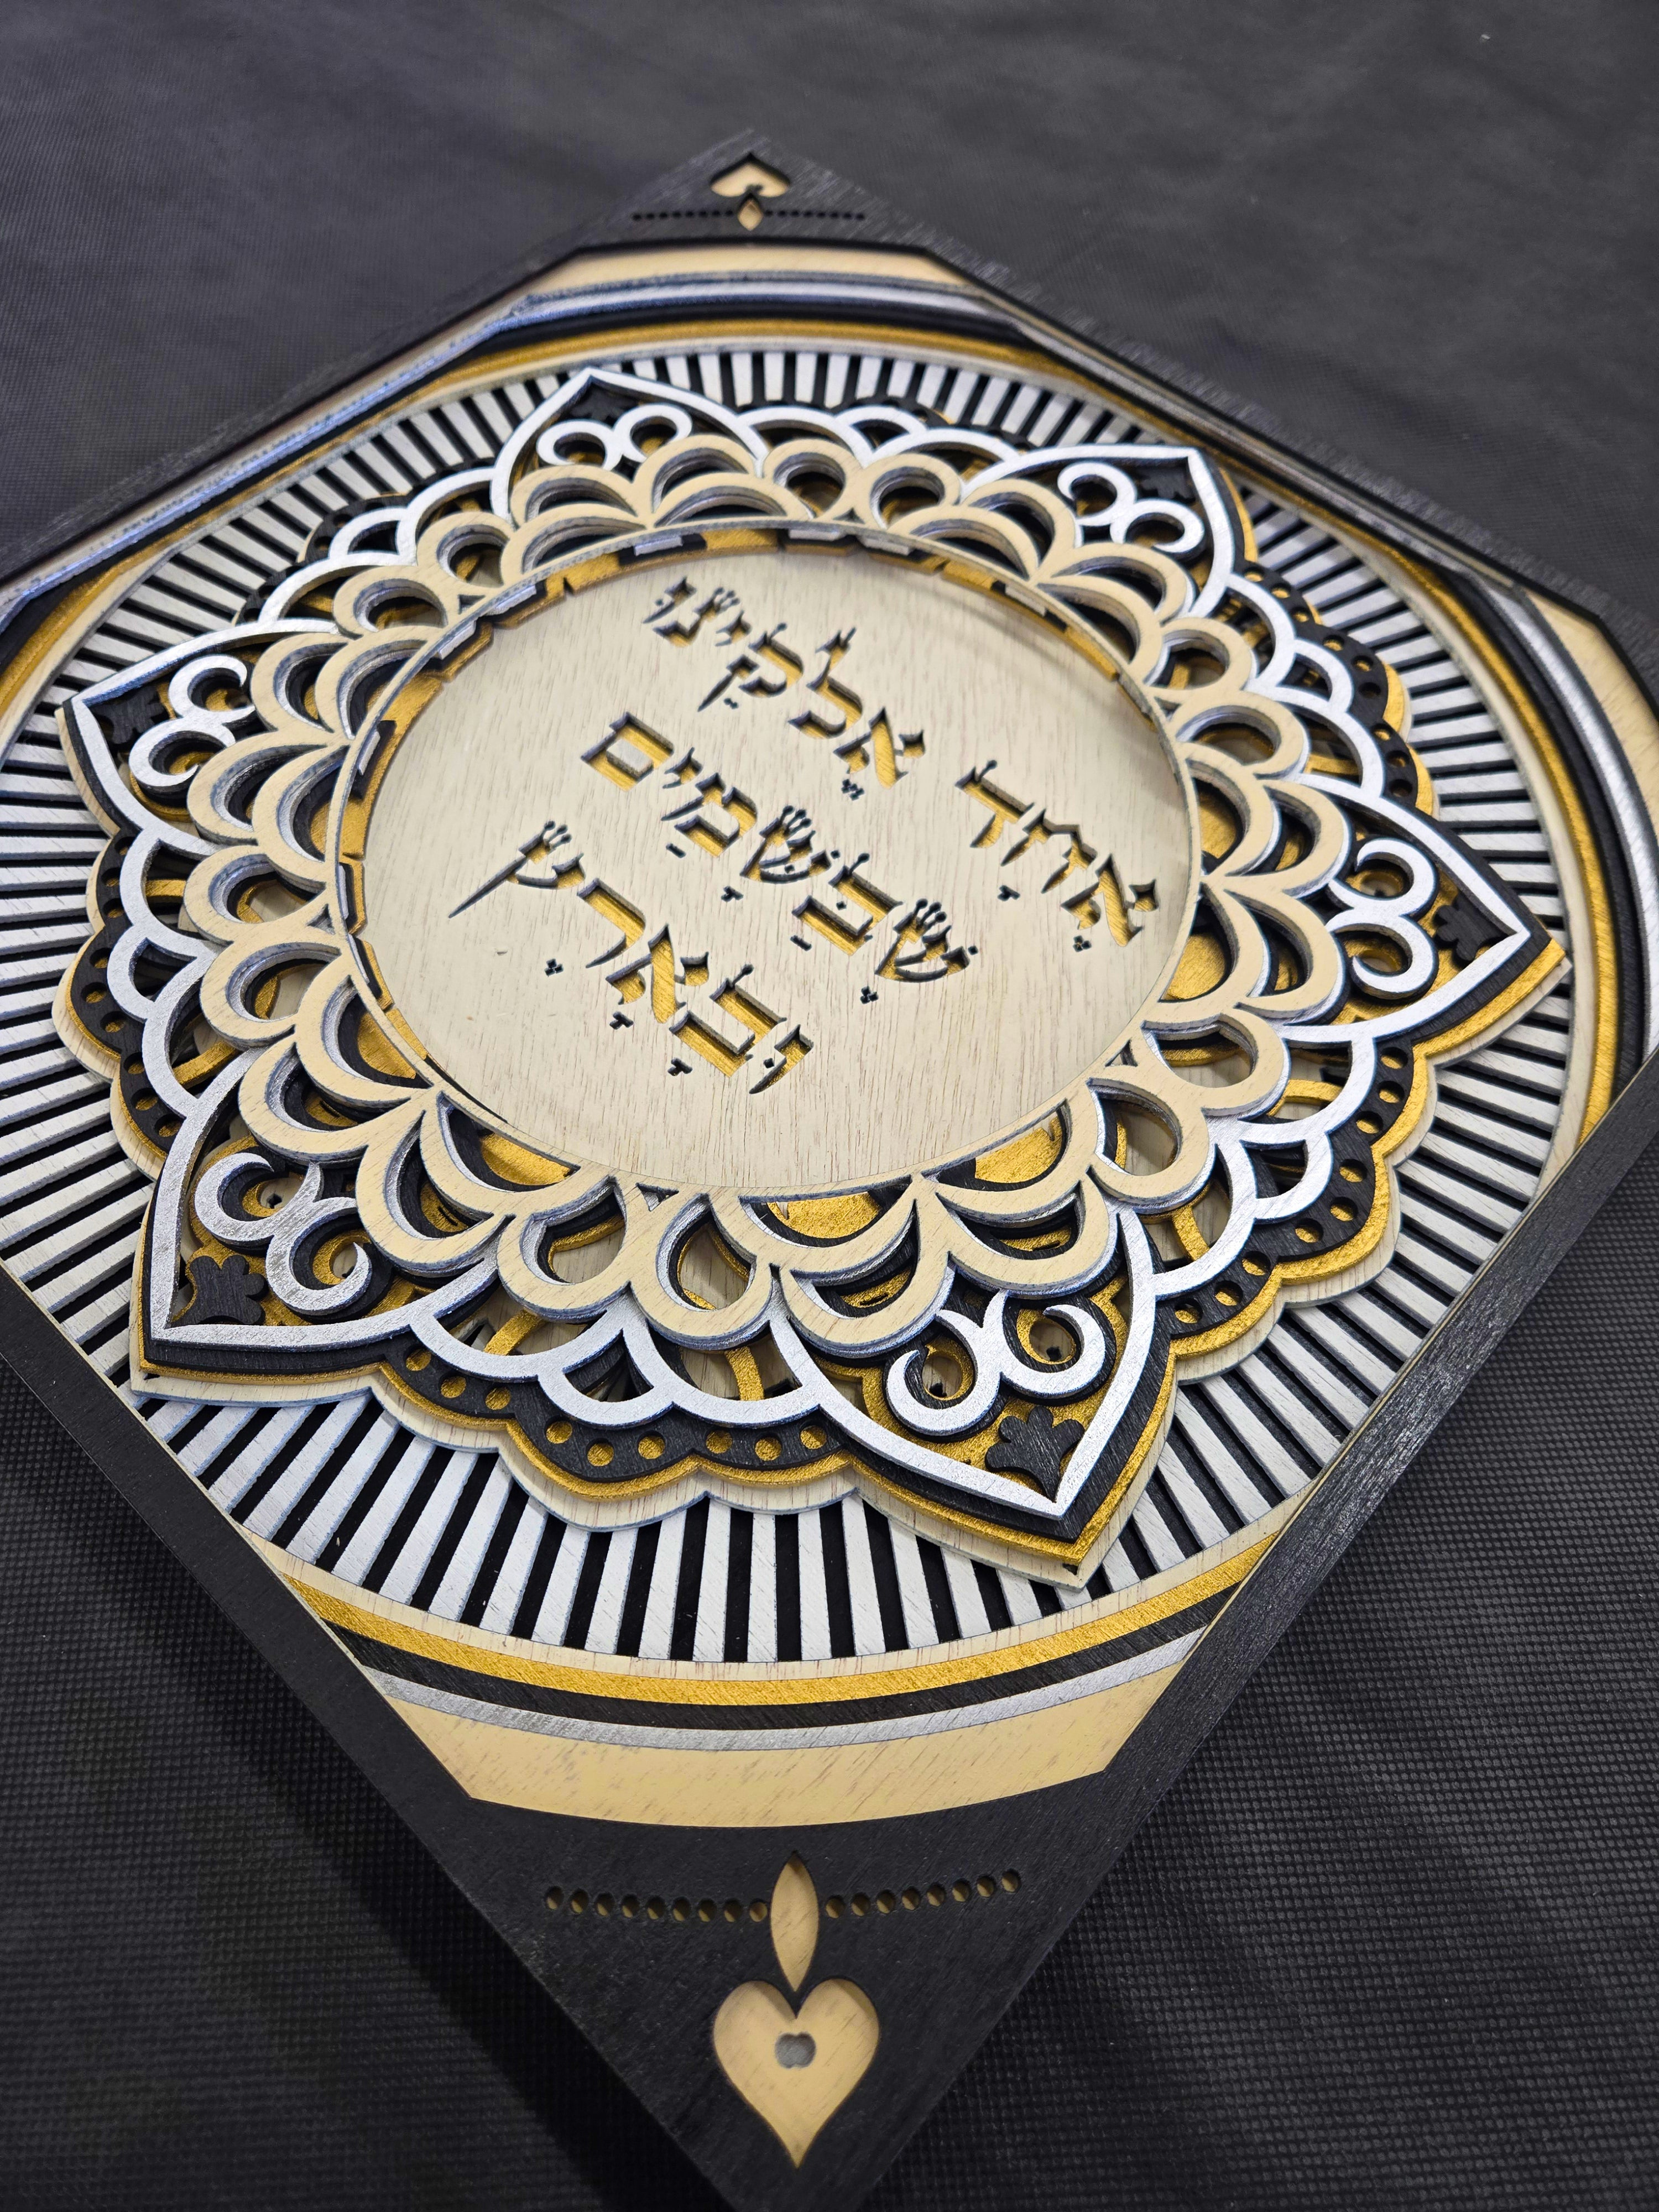 אֶחָד אֱלֹקֵינוּ
שֶׁבַּשָּׁמַיִם
וּבָאָרֶץ